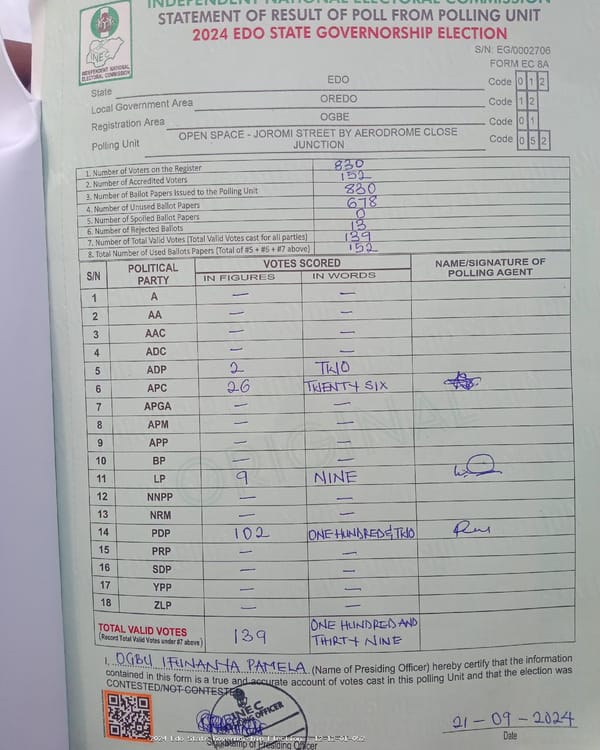 INDEPENDENT NATIONAL ELECTORAL COMMISSION
STATEMENT OF RESULT OF POLL FROM POLLING UNIT
2024 EDO STATE GOVERNORSHIP ELECTION
INEC
INDEPENDENT NATIONAL
ELECTORAL COMMISSION
S/N: EG/0002706
FORM EC 8A
State EDO Code 0 1 2
Local Government Area OREDO Code 1 2
Registration Area OGBE Code 0 1
Polling Unit OPEN SPACE - JOROMI STREET BY AERODROME CLOSE JUNCTION Code 0 5 2
1. Number of Voters on the Register 830
2. Number of Accredited Voters 152
3. Number of Ballot Papers Issued to the Polling Unit 830
4. Number of Unused Ballot Papers 678
5. Number of Spoiled Ballot Papers 0
6. Number of Rejected Ballots 13
7. Number of Total Valid Votes (Total Valid Votes cast for all parties) 139
8. Total Number of Used Ballots Papers (Total of #5 + #6 + #7 above) 152
S/N POLITICAL PARTY VOTES SCORED NAME/SIGNATURE OF POLLING AGENT
IN FIGURES IN WORDS
1 A — —
2 AA — —
3 AAC — —
4 ADC — —
5 ADP 2 TWO
6 APC 26 TWENTY SIX
7 APGA — —
8 APM — —
9 APP — —
10 BP — —
11 LP 9 NINE
12 NNPP — —
13 NRM — —
14 PDP 102 ONE HUNDRED & TWO
15 PRP — —
16 SDP — —
17 YPP — —
18 ZLP — —
ORIGINAL
TOTAL VALID VOTES 139 ONE HUNDRED AND
(Record Total Valid Votes under #7 above) THIRTY NINE
I, OGBU IFUNANYA PAMELA (Name of Presiding Officer) hereby certify that the information
contained in this form is a true and accurate account of votes cast in this polling Unit and that the election was
CONTESTED/NOT CONTESTED
INEC
21-09-2024
Date
2024 Edo State Governorship Election - 12-12-01-052
Sign/Stamp of Presiding Officer